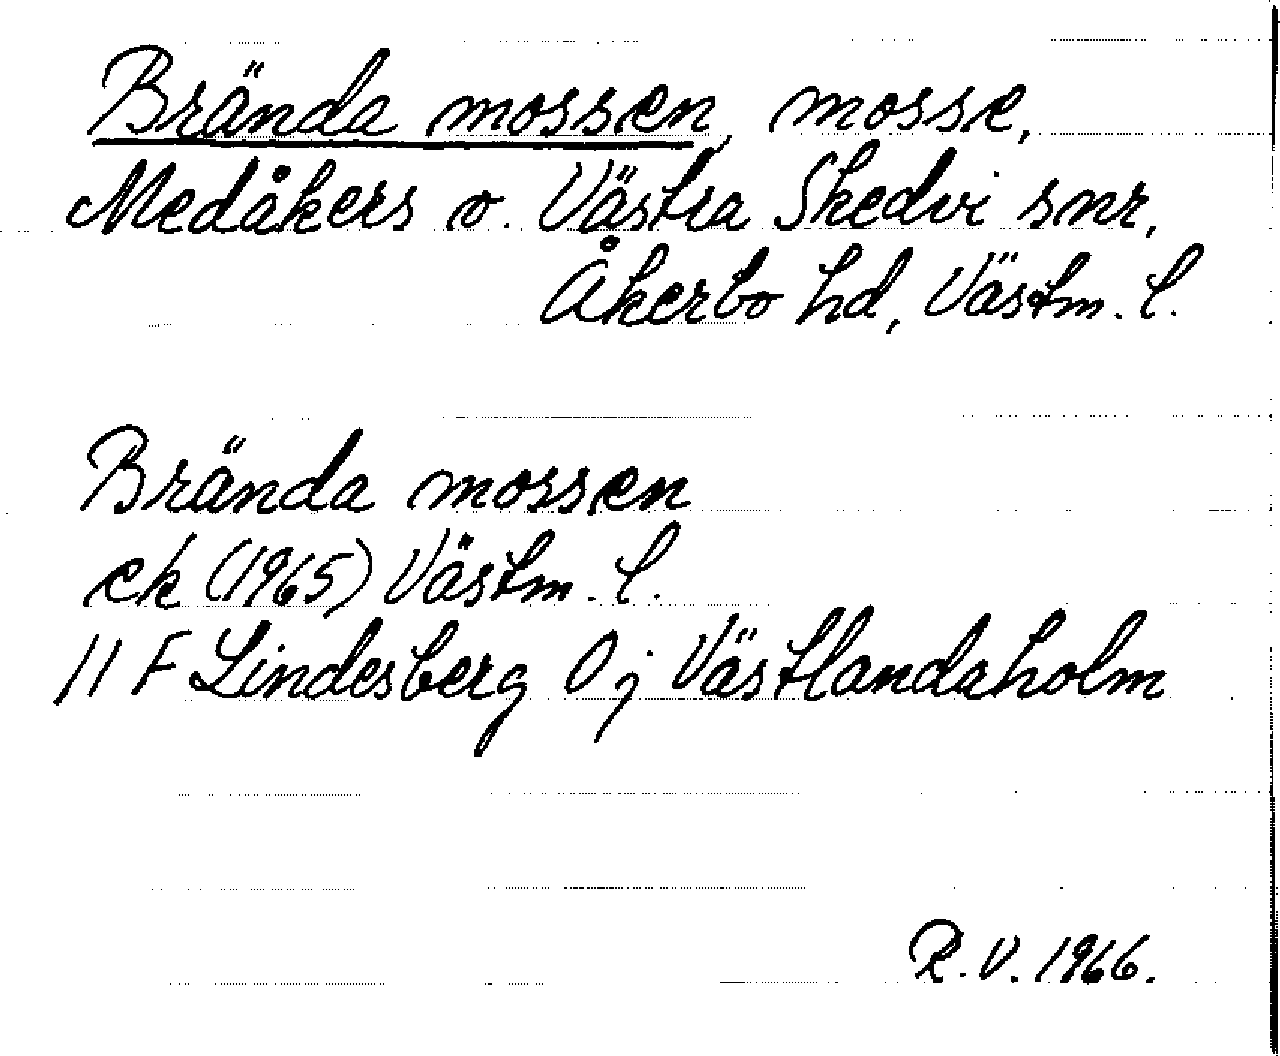 Brända mossen, mosse,
Medåkers o. Västra Skedvi snr,
Åkerbo hd, Västm. l.
Brända mossen
ek (1965) Västm. l.
11 F Lindesberg 0 j Västlandaholm
R.V. 1966.